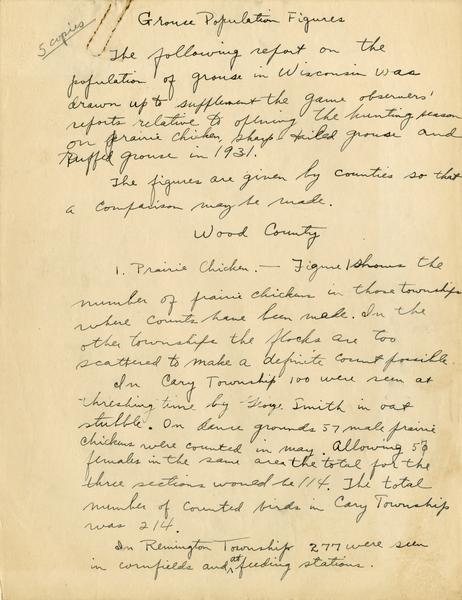 5 copies
Grouse Population Figures
The following report on the
population of grouse in Wisconsin was
drawn up to supplement the game observers'
reports relative to opening the hunting season
on prairie chicken, sharp-tailed grouse and
ruffed grouse in 1931.
The figures are given by counties so that
a comparison may be made.
Wood County
1. Prairie Chicken. — Figure 1 shows the
number of prairie chickens in those townships
where counts have been made. In the
other townships the flocks are too
scattered to make a definite count possible.
In Cary Township 100 were seen at
threshing time by Smith in oat
stubble. On dance grounds 57 male prairie
chickens were counted in may. Allowing 57
females in the same area the total for the
three sections would be 114. The total
number of counted birds in Cary Township
was 214.
In Remington Township 277 were seen
in cornfields and at feeding stations.